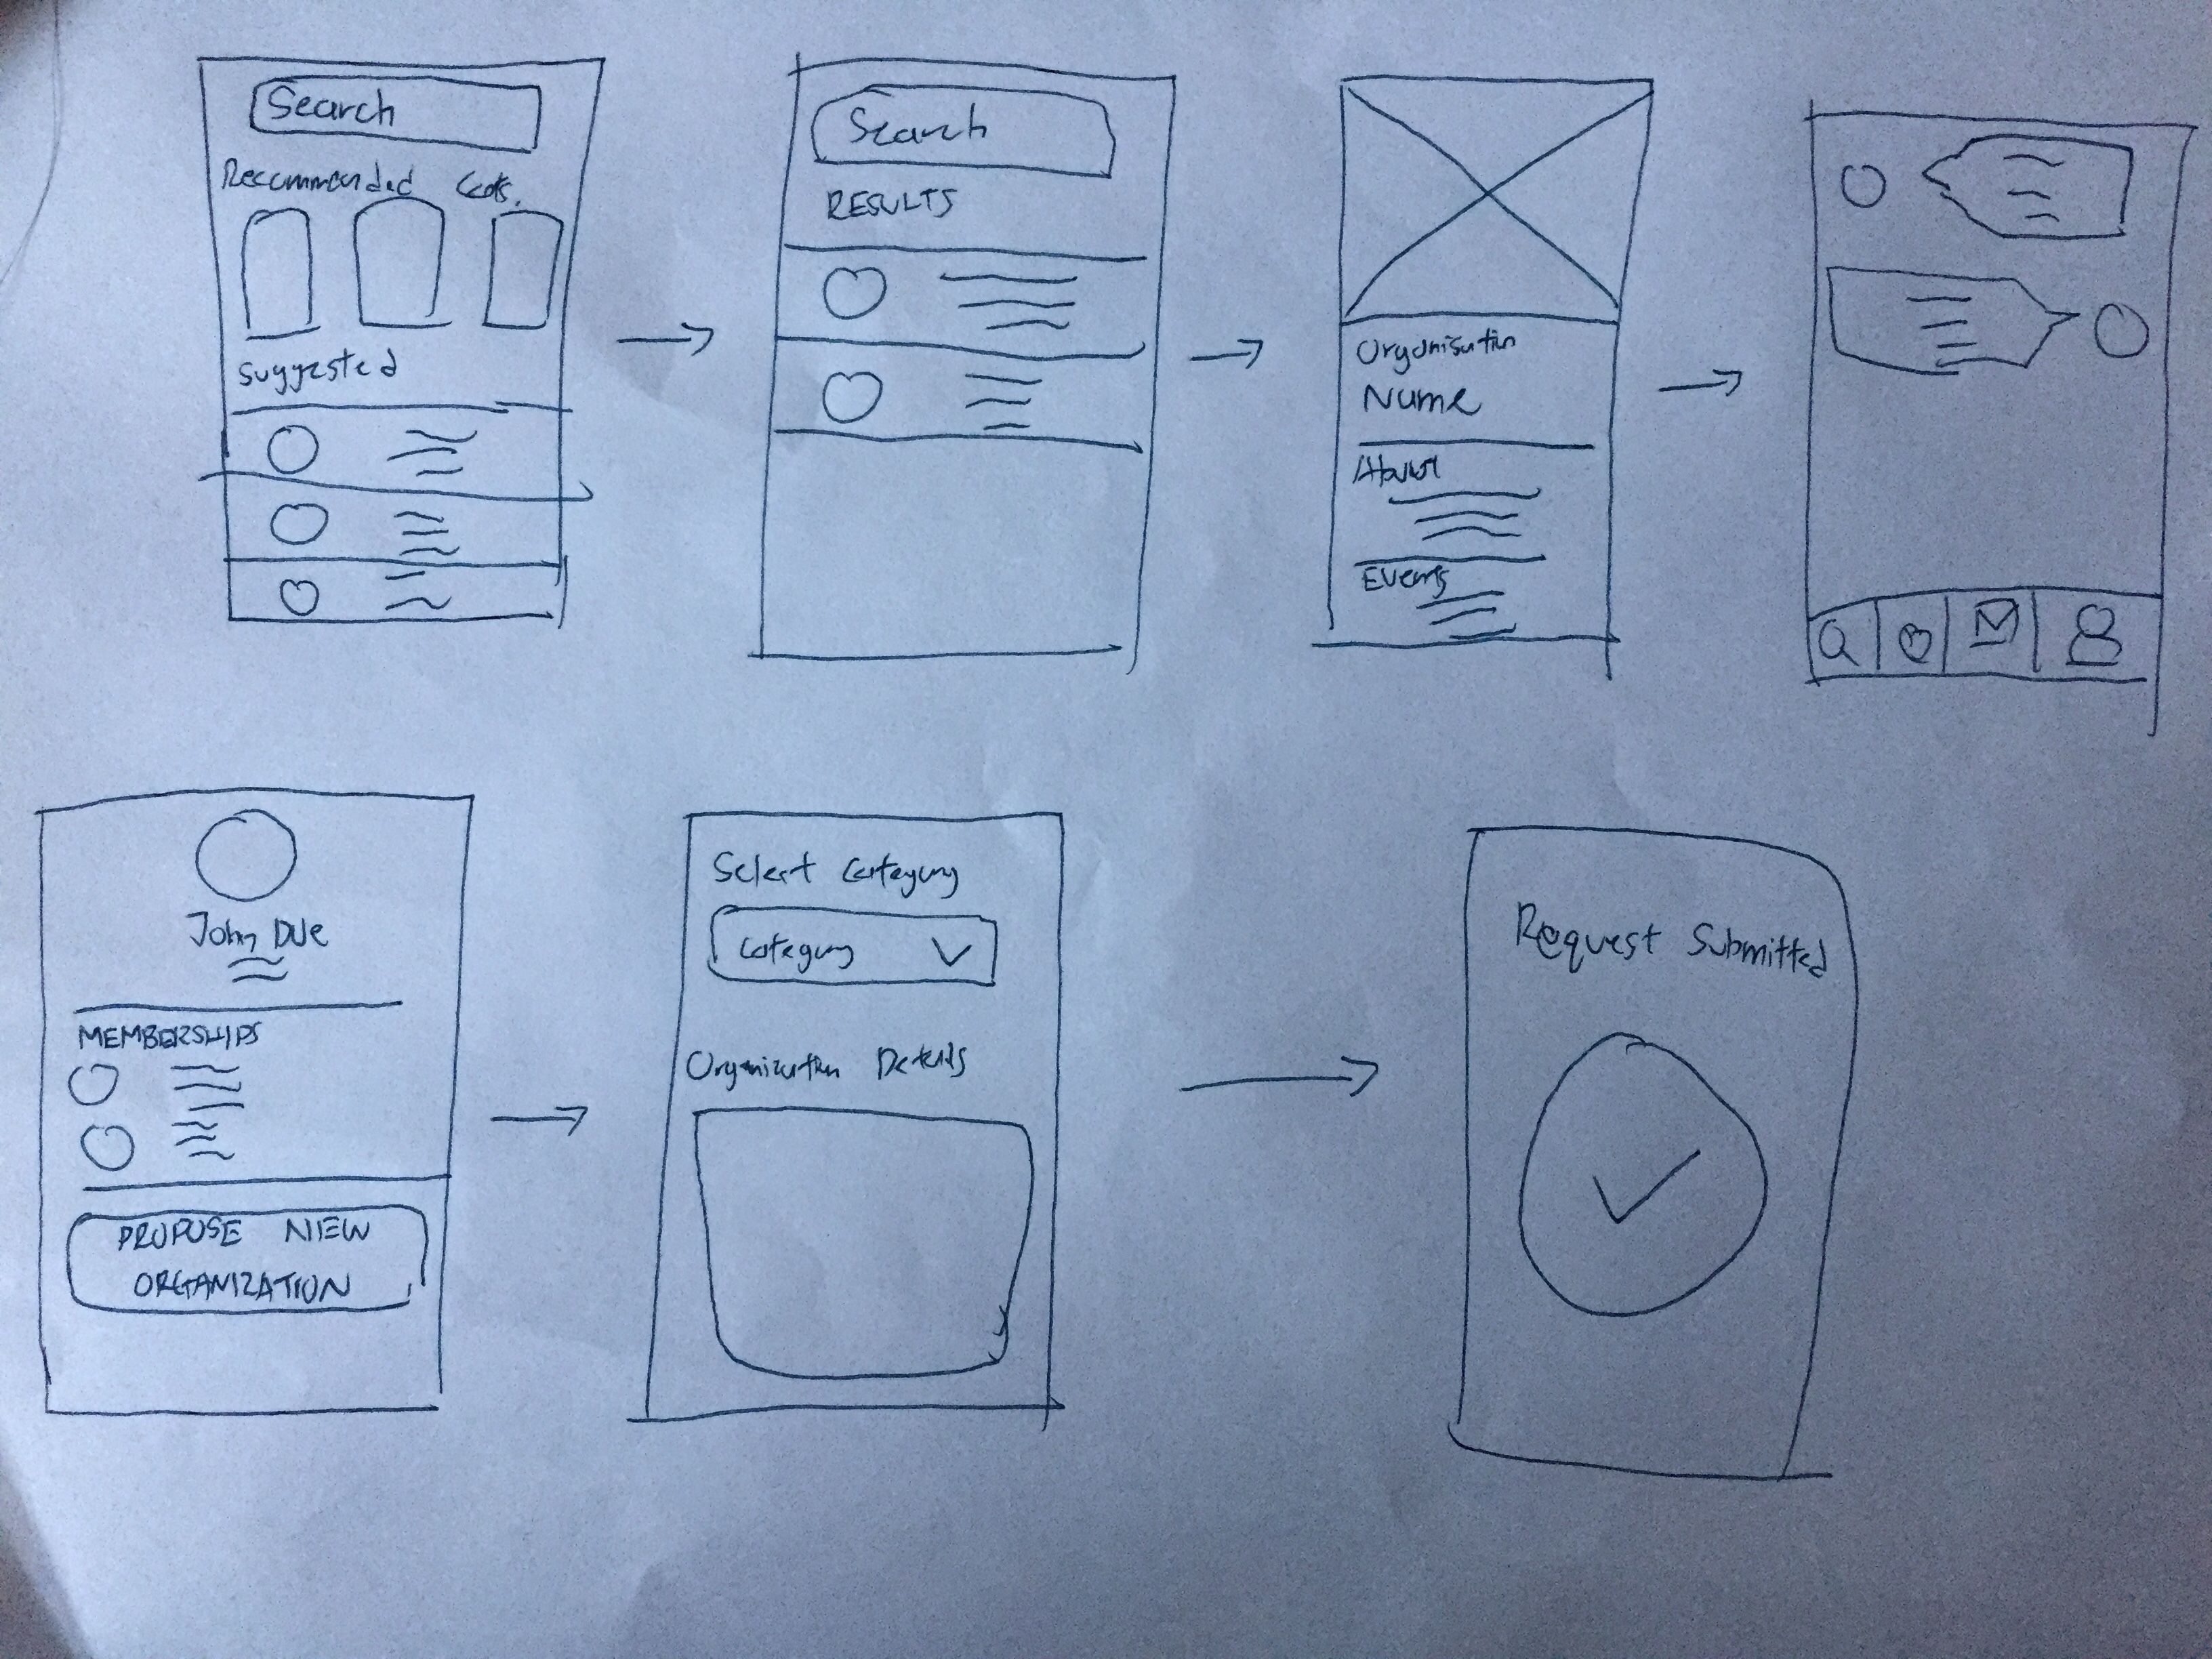 Search
Recommended Cats.
Suggested
Search
RESULTS
Organisation
Name
About
Events
John Doe
MEMBERSHIPS
PROPOSE NEW
ORGANIZATION
Select Category
Category
Organization Details
Request Submitted